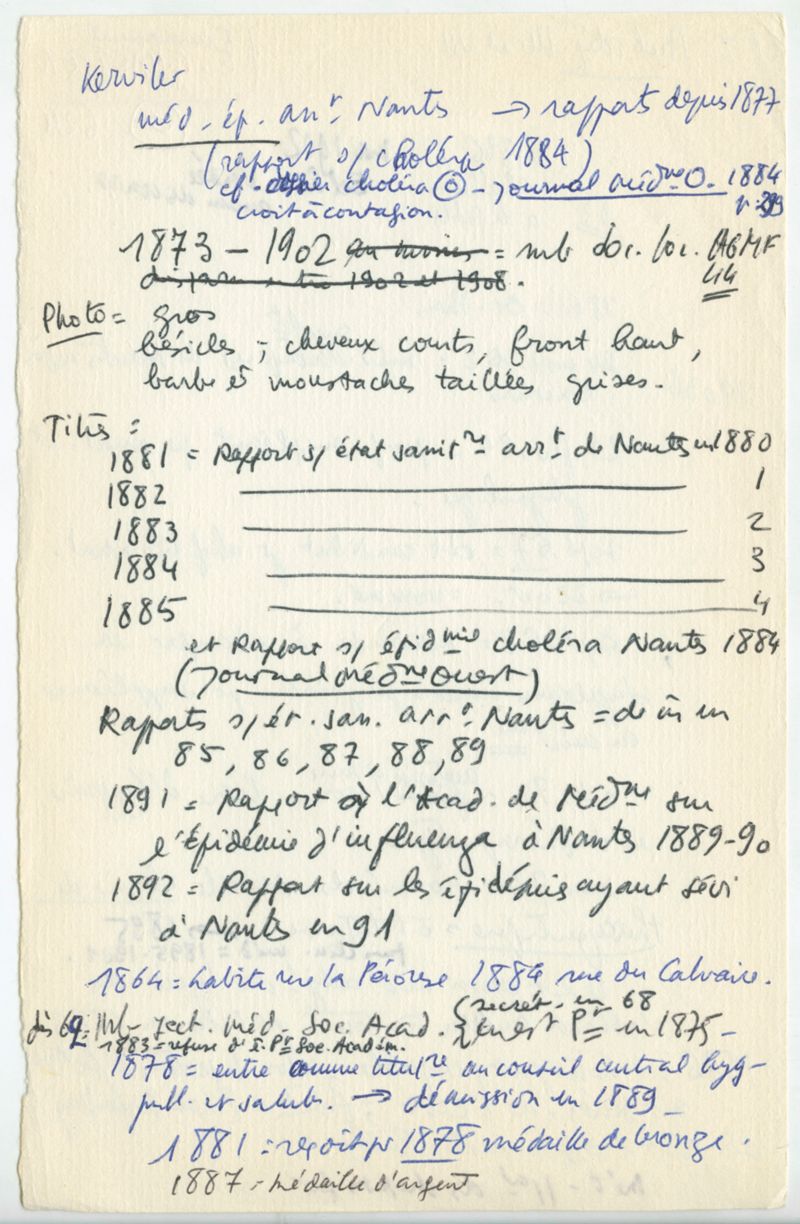 Kerviler
méd. ép. arr^t Nantes → rapports depuis 1877
(rapport s/ choléra 1884)
cf. dossier choléra - Journal méd^ne O. 1884
croit à contagion.
1873 – 1902 au moins = mb doc. loc. ABMF
disparu entre 1902 et 1908. 44
Photo = gros
bésicles ; cheveux courts, front haut,
barbe et moustaches taillées grises.
Titres :
1881 = Rapport s/ état sanit^re arr^t de Nantes en 1880
1882 ——— 1
1883 ——— 2
1884 ——— 3
1885 ——— 4
et Rapport s/ épid^mie choléra Nantes 1884
(Journal Méd^ne Ouest)
Rapports s/ ét. san. arr^t Nantes = de m en
85, 86, 87, 88, 89
1891 = Rapport à l'Acad. de Méd^ne sur
l'épidémie d'influenza à Nantes 1889-90
1892 = Rapport sur les épidémies ayant sévi
à Nantes en 91
1864 = habite rue la Pérouse 1884 rue du Calvaire.
(secrét. en 68
dès 62 = Mb sect. méd. Soc. Acad. { en est P^t en 1875 –
1883 = refuse d'ê. P^t Soc. Académ.
1878 = entre comme titul^re au conseil central hyg-
publ. et salub. → démission en 1889
1881 = reçoit pr 1878 médaille de bronze.
1887 = médaille d'argent